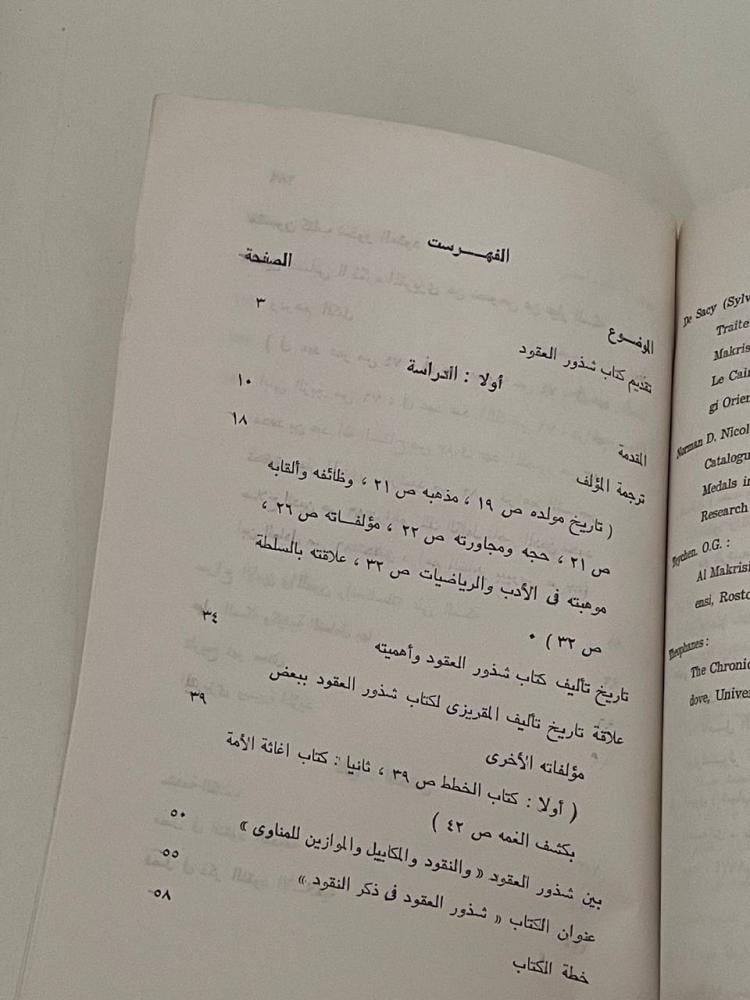 الفهـــرست
الموضـــوع الصفحة
تقديم كتاب شذور العقود ٣
أولا : الدراسة
المقدمة ١٠
ترجمة المؤلف ١٨
( تاريخ مولده ص ١٩ ، مذهبه ص ٢١ ، وظائفه وألقابه
ص ٢١ ، حجه ومجاورته ص ٢٢ ، مؤلفـــاته ص ٢٦ ،
موهبته فى الأدب والرياضيات ص ٣٢ ، علاقته بالسلطة
ص ٣٢ ) •
تاريخ تأليف كتاب شذور العقود وأهميته ٣٤
علاقة تاريخ تأليف المقريزى لكتاب شذور العقود ببعض
مؤلفاته الأخرى ٣٩
( أولا : كتاب الخطط ص ٣٩ ، ثانيا : كتاب اغاثة الأمة
بكشف الغمه ص ٤٢ )
بين شذور العقود « والنقود والمكاييل والموازين للمناوى » ٥٠
عنوان الكتاب « شذور العقود فى ذكر النقود » ٥٥
خطة الكتاب ٥٨
De Sacy (Sylv
Traite
Makris
Le Cair
gi Orien
Norman D. Nicol
Catalogu
Medals in
Research
Tychen. O.G. :
Al Makrisi
ensi, Rosto
Theophanes :
The Chronic
dove, Univer